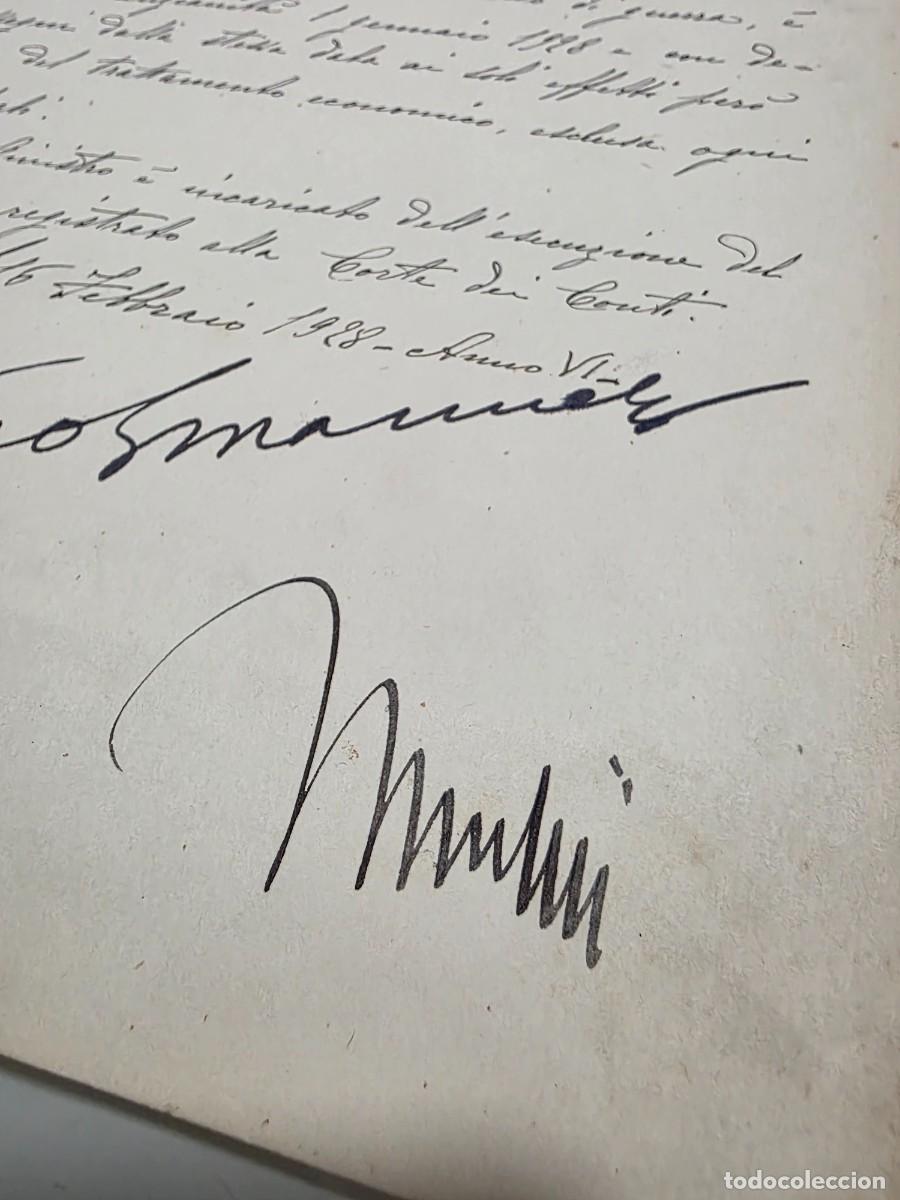 di guerra, è
1 gennaio 1928 e con de-
della stessa data ai soli effetti però
del trattamento economico, esclusa ogni
Ministro è incaricato dell'esecuzione del
registrato alla Corte dei Conti.
16 Febbraio 1928 - Anno VI -
Emanuele
todocoleccion